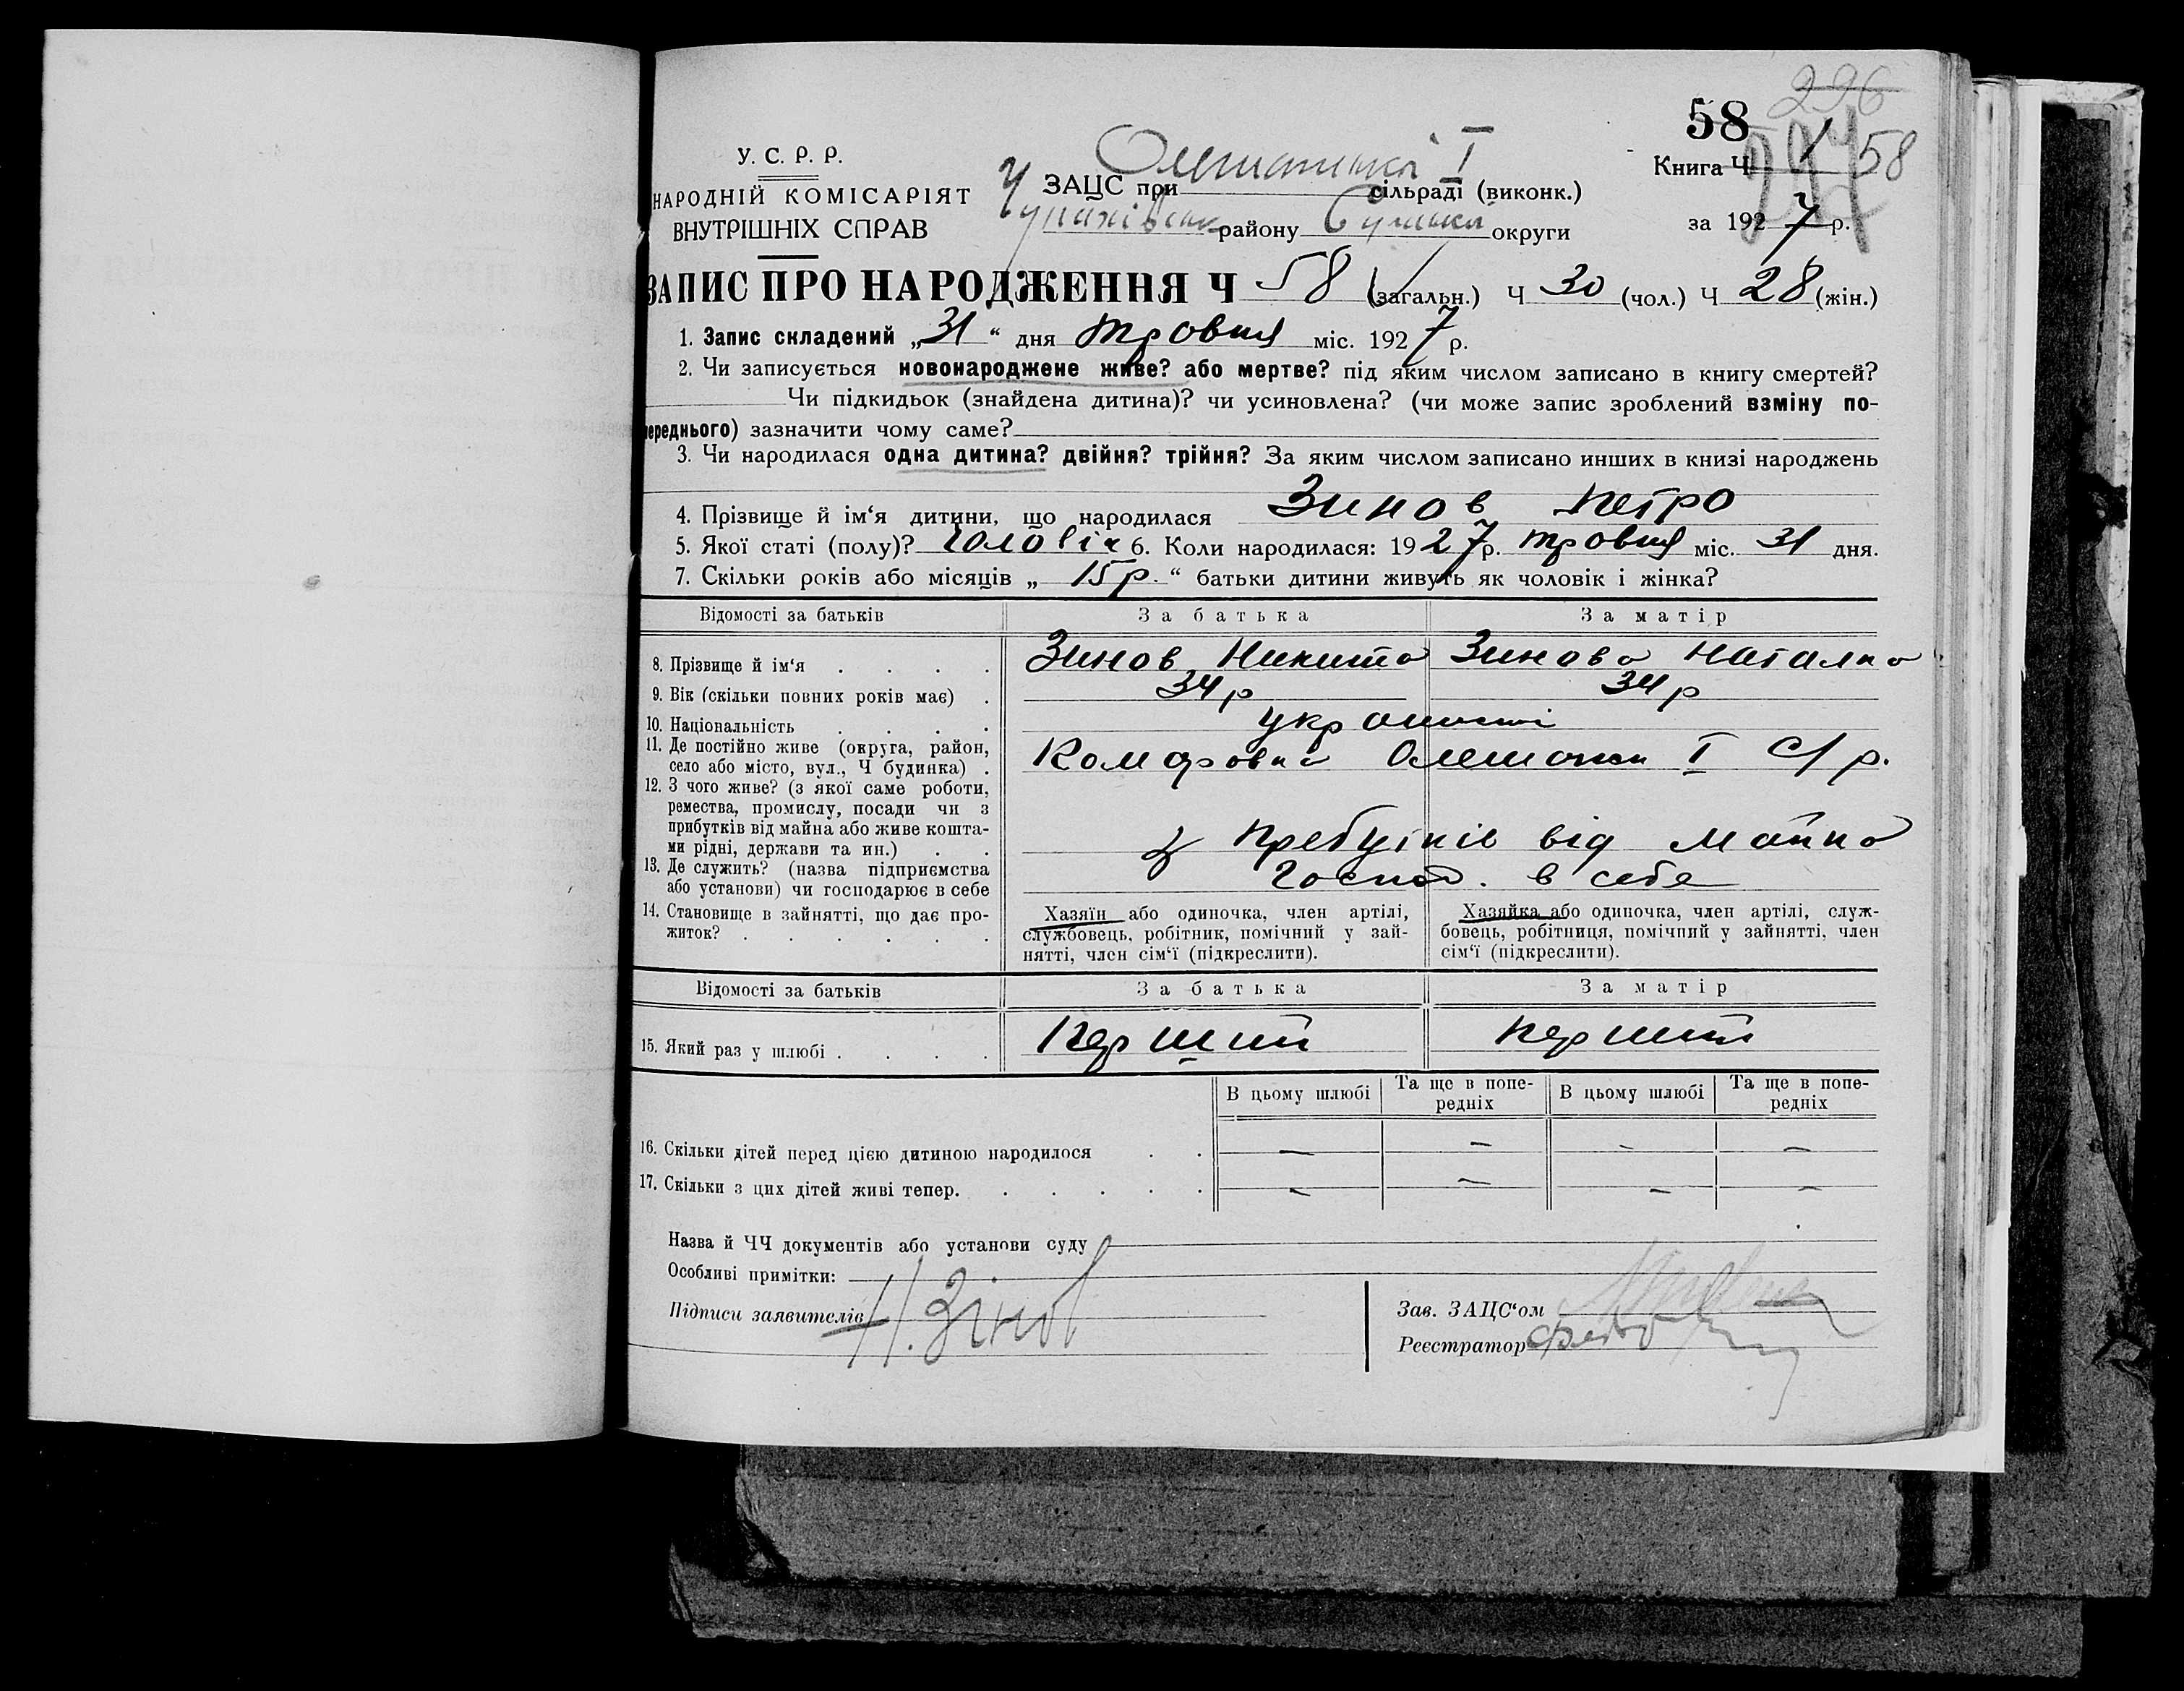 296
58
У. С. Р. Р.
НАРОДНІЙ КОМІСАРІЯТ
ВНУТРІШНІХ СПРАВ
ЗАЦС при сільраді (виконк.)
району Сумської округи
Книга Ч 1 58
за 1927 р.
ЗАПИС ПРО НАРОДЖЕННЯ Ч 58 (загальн.) Ч 30 (чол.) Ч 28 (жін.)
1. Запис складений „31“ дня травня міс. 1927 р.
2. Чи записується новонароджене живе? або мертве? під яким числом записано в книгу смертей?
Чи підкидьок (знайдена дитина)? чи усиновлена? (чи може запис зроблений взміну по-
переднього) зазначити чому саме?
3. Чи народилася одна дитина? двійня? трійня? За яким числом записано инших в книзі народжень
4. Прізвище й ім‘я дитини, що народилася Зинов Петро
5. Якої статі (полу)? чоловіч 6. Коли народилася: 1927р. травня міс. 31 дня.
7. Скільки років або місяців „ 15 р. “ батьки дитини живуть як чоловік і жінка?
Відомості за батьків За батька За матір
8. Прізвище й ім‘я . . . . Зинов Никита Зинова Наталка
9. Вік (скільки повних років має) . 34 р 34 р
10. Національність . . . .
11. Де постійно живе (округа, район,
село або місто, вул., Ч будинка) . I С/р.
12. З чого живе? (з якої саме роботи,
ремества, промислу, посади чи з
прибутків від майна або живе кошта-
ми рідні, держави та ин.) . . З пребутків від майна
13. Де служить? (назва підприємства
або установи) чи господарює в себе Господ. в себе
14. Становище в зайнятті, що дає про-
житок? . . . . . .
Хазяїн або одиночка, член артілі,
службовець, робітник, помічний у зай-
нятті, член сім‘ї (підкреслити).
Хазяйка або одиночка, член артілі, служ-
бовець, робітниця, помічний у зайнятті, член
сім‘ї (підкреслити).
Відомості за батьків За батька За матір
15. Який раз у шлюбі . . . . Перший Перший
В цьому шлюбі Та ще в попе-
редніх В цьому шлюбі Та ще в попе-
редніх
16. Скільки дітей перед цією дитиною народилося . . — — — —
17. Скільки з цих дітей живі тепер. . . . . . — — — —
Назва й ЧЧ документів або установи суду
Особливі примітки:
Підписи заявителів Н. Зінов
Зав. ЗАЦС‘ом
Реєстратор